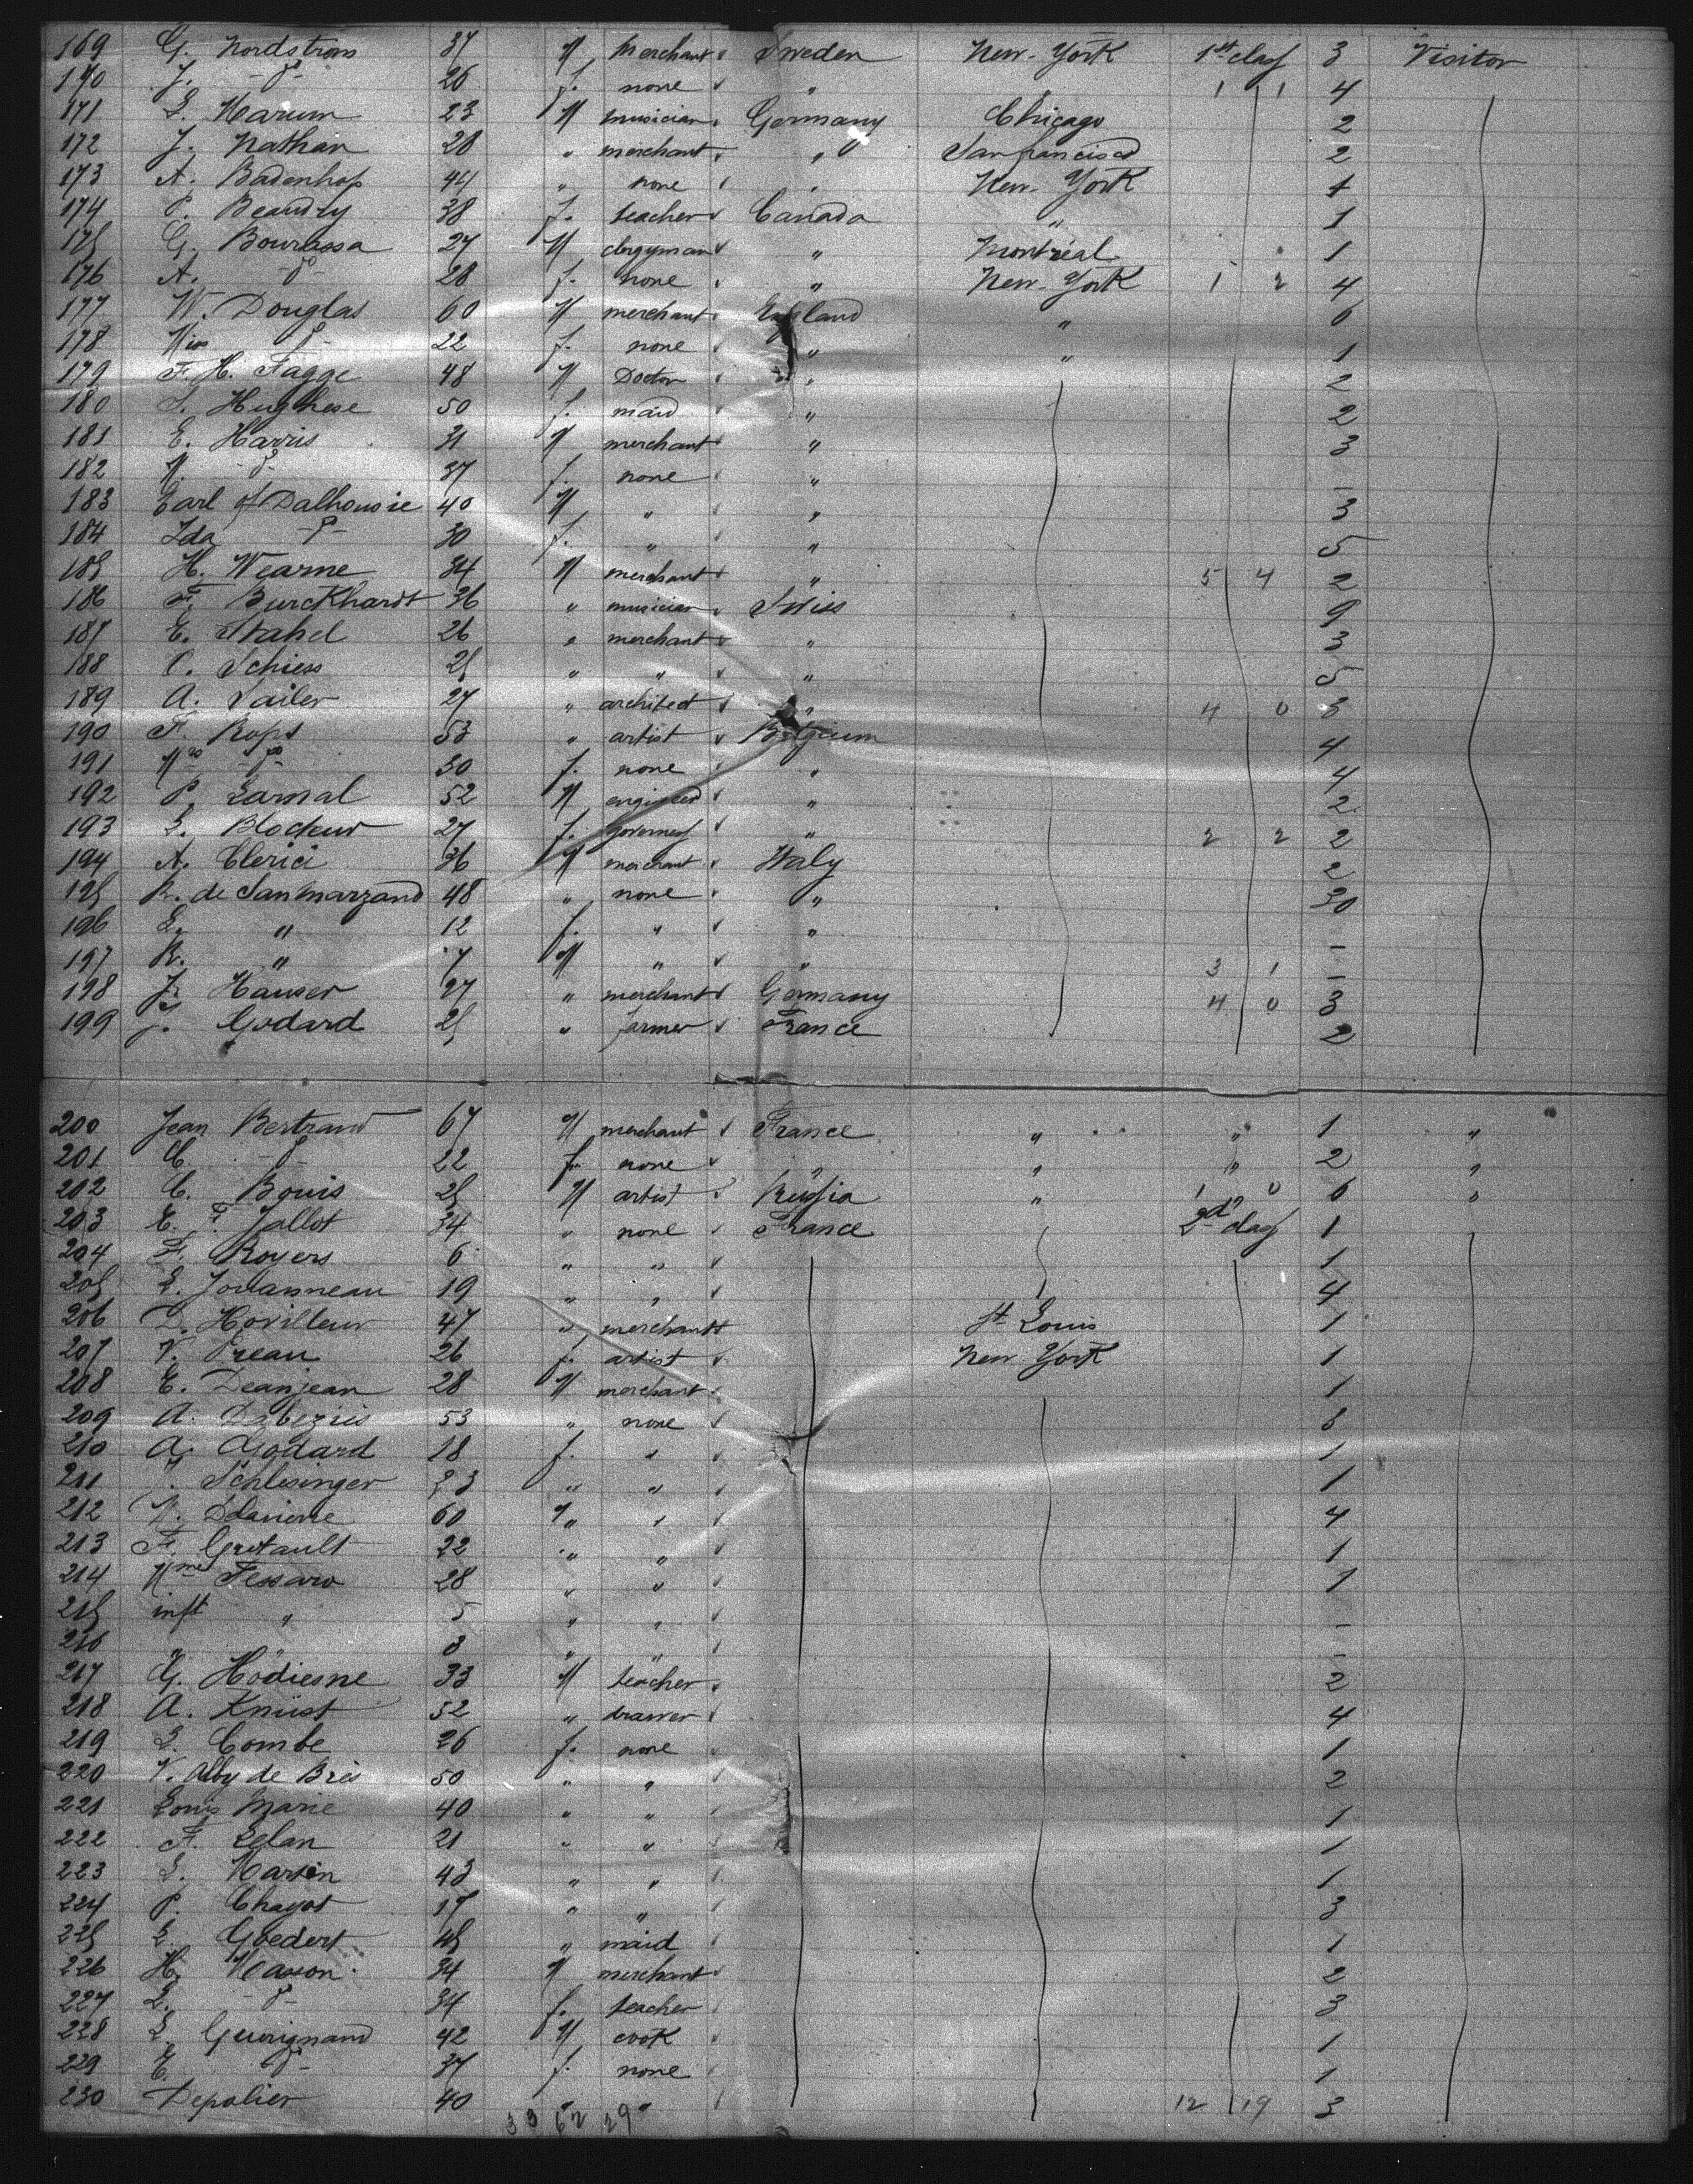 169 G. Nordstrom 37 M Merchant Sweden New-York 1st class 3 Visitor
170 J. -d°- 26 f. none " 1 1 4
171 L. Marum 23 M musician Germany Chicago 2
172 J. Nathan 28 " merchant " San francisco 2
173 A. Badenhop 44 " none " New-York 1
174 Beaudry 38 f. teacher Canada " 1
175 G. Bourassa 27 M clergyman " Montréal 1
176 A. -d°- 28 f. none " New-York 1 2 4
177 W. Douglas 60 M merchant England " 6
178 Miss d°- 22 f. none " " 1
179 F. H. Fagge 48 M Doctor " 2
180 Hughese 50 f. maid " 2
181 E. Harris 31 M merchant " 3
182 M. -d°- 37 f. none " -
183 Earl of Dalhousie 40 M " " 3
184 Ida -d°- 30 f. " " 5
185 H. Wearne 34 M merchant " 5 4 2
186 F. Burckhardt 36 " musician Swiss 9
187 E. Stahel 26 " merchant " 3
188 C. Schiess 25 " " " 5
189 A. Sailer 27 " architect " 4 0 3
190 F. Rops 53 " artist Belgium 4
191 Mrs -d°- 30 f. none " 4
192 P. Larnal 52 M engineer " 2
193 L. Blockeur 27 f. governess " 2 2 2
194 A. Clerici 36 M merchant Italy 2
195 R. de San Marzano 48 " none " 30
196 L. " 12 f. " " -
197 R. " 7 M " " 3 1 -
198 J. Hauser 27 " merchant Germany 4 0 3
199 J. Godard 25 " farmer France 2
200 Jean Bertrand 67 M merchant France " " 1 "
201 C. -d°- 22 f. none " " " 2 "
202 C. Bouis 25 M artist Russia " 1 0 6 "
203 E. F. Jallot 34 " none France 2d class 1
204 F. Royers 6 " " 1
205 L. Jouanneau 19 " " 4
206 D. Hovilleur 47 " merchant St Louis 1
207 V. Preau 26 f. artist New York 1
208 E. Deanjean 28 M merchant 1
209 A. Dabezies 53 " none
210 A. Godard 18 f. " 1
211 Schlesinger 23 " " 1
212 60 " " 4
213 F. Gretault 22 " " 1
214 Mme Fessaro 28 " " 1
215 inft " 5 " " -
216 " 3 " " -
217 G. Hodiesne 33 M teacher 2
218 A. Knust 52 " drawer 4
219 L. Combe 26 f. none 1
220 V. Alby de Bres 50 " " 2
221 Louis Marie 40 " " 1
222 F. Lelan 21 " " 1
223 L. Martin 43 " " 1
224 P. Chagot 17 " " 3
225 L. Goedert 45 " maid 1
226 H. Masson 34 M merchant 2
227 L. -d°- 34 f. teacher 3
228 L. Guerignand 42 M cook 1
229 E. d°- 37 f. none 1
230 Depolier 40 " " 12 19 3
33 62 29